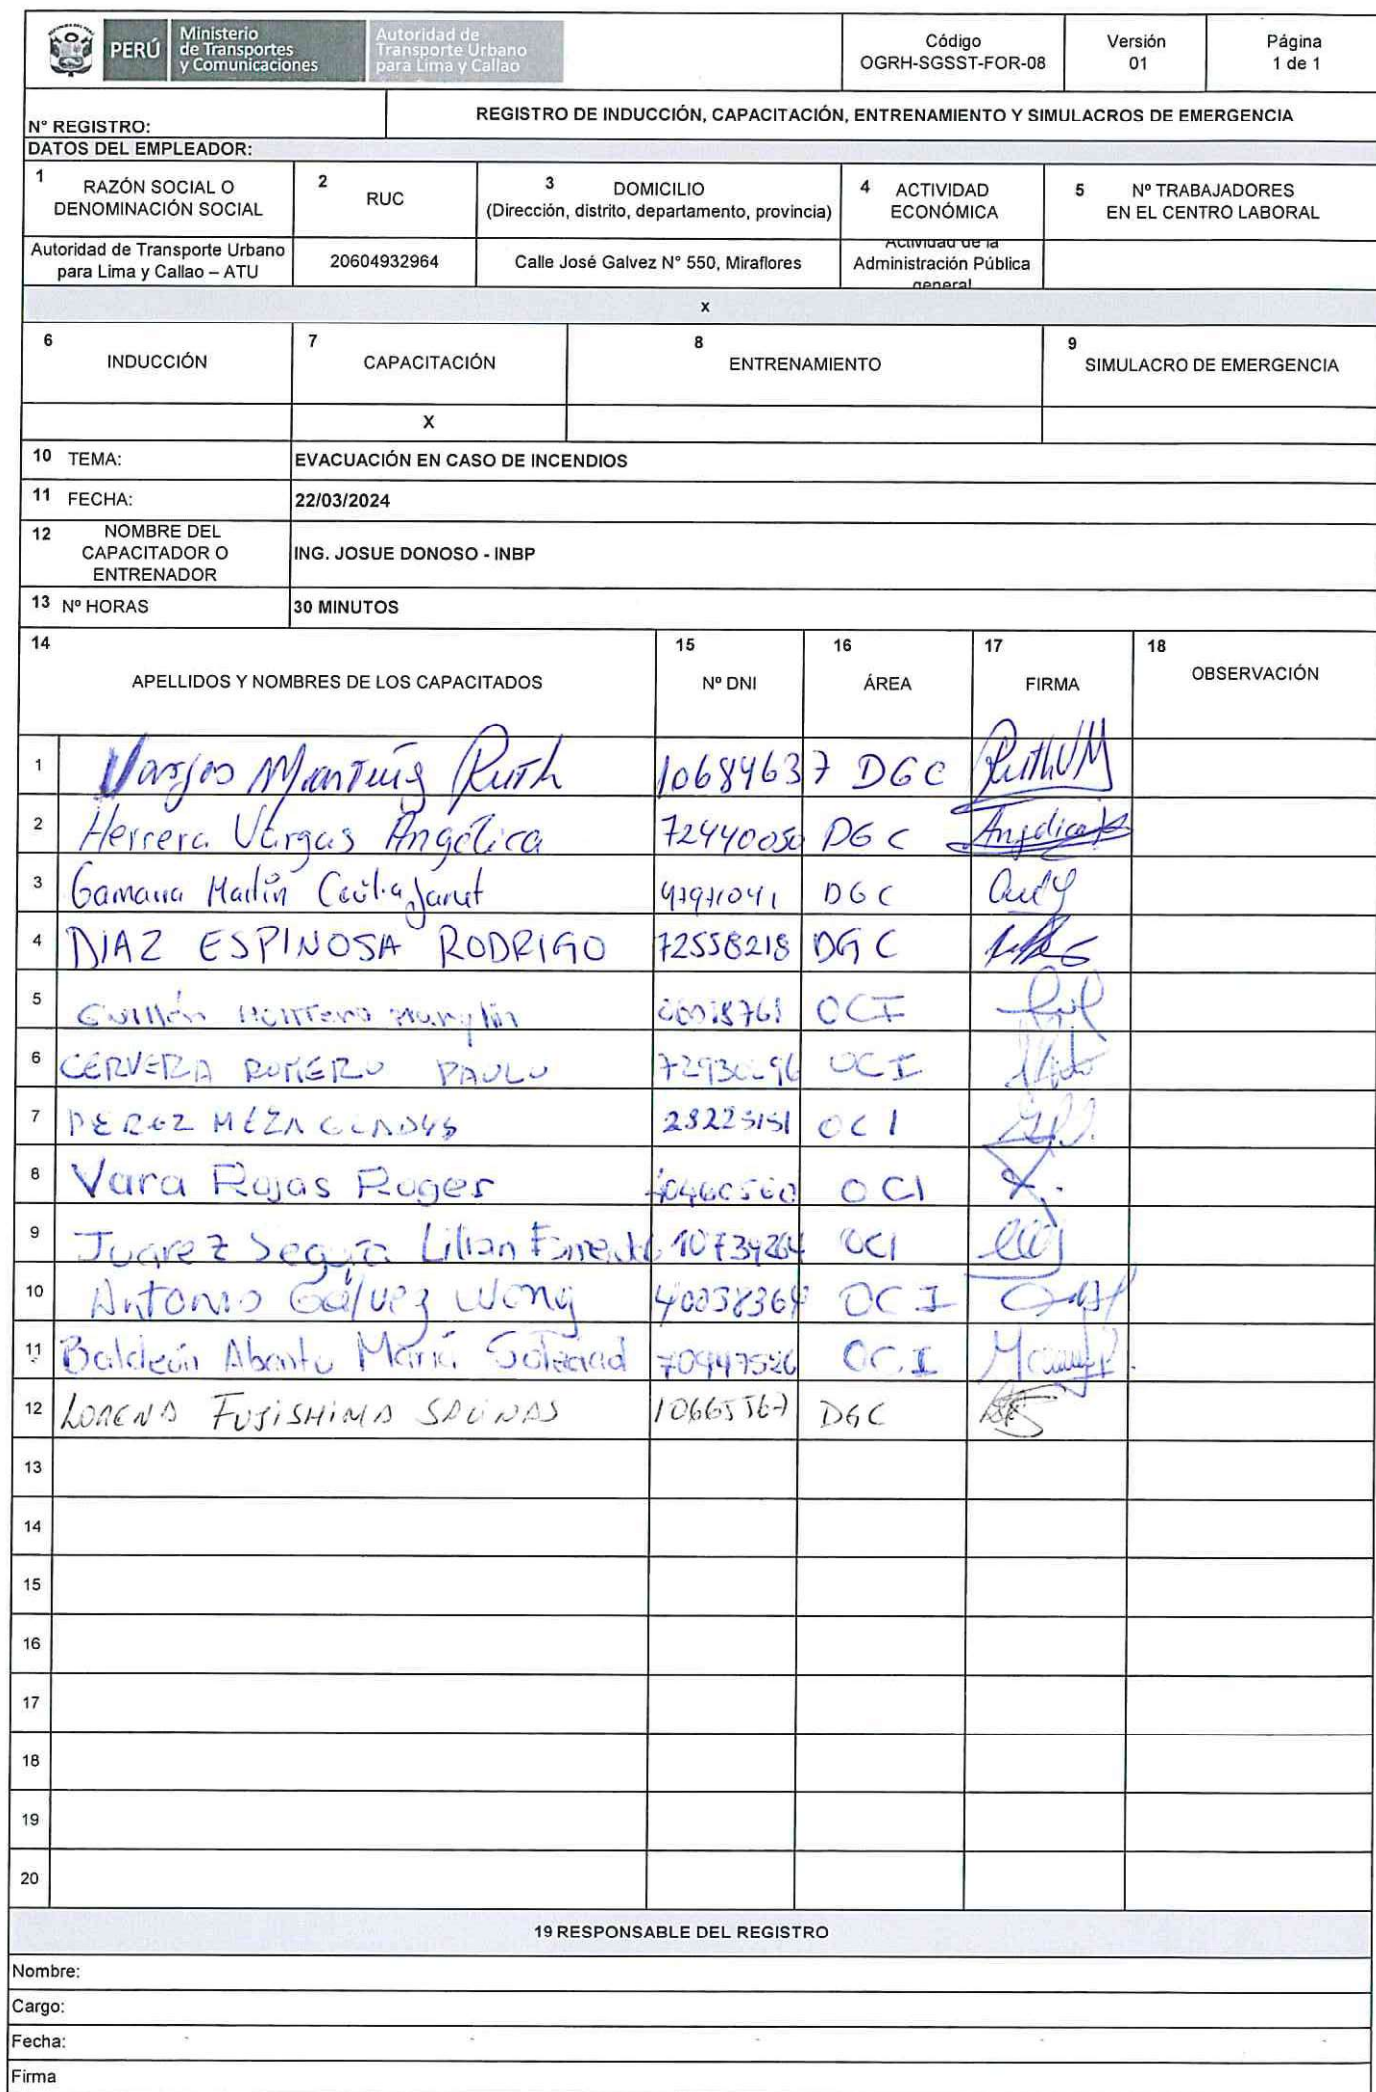 PERÚ
Ministerio
de Transportes
y Comunicaciones
Autoridad de
Transporte Urbano
para Lima y Callao
Código
OGRH-SGSST-FOR-08
Versión
01
Página
1 de 1
N° REGISTRO:
REGISTRO DE INDUCCIÓN, CAPACITACIÓN, ENTRENAMIENTO Y SIMULACROS DE EMERGENCIA
DATOS DEL EMPLEADOR:
1 RAZÓN SOCIAL O
DENOMINACIÓN SOCIAL
2 RUC
3 DOMICILIO
(Dirección, distrito, departamento, provincia)
4 ACTIVIDAD
ECONÓMICA
5 Nº TRABAJADORES
EN EL CENTRO LABORAL
Autoridad de Transporte Urbano
para Lima y Callao – ATU
20604932964
Calle José Galvez N° 550, Miraflores
Actividad de la
Administración Pública
general
x
6 INDUCCIÓN
7 CAPACITACIÓN
8 ENTRENAMIENTO
9 SIMULACRO DE EMERGENCIA
X
10 TEMA: EVACUACIÓN EN CASO DE INCENDIOS
11 FECHA: 22/03/2024
12 NOMBRE DEL
CAPACITADOR O
ENTRENADOR
ING. JOSUE DONOSO - INBP
13 Nº HORAS 30 MINUTOS
14 APELLIDOS Y NOMBRES DE LOS CAPACITADOS
15 Nº DNI
16 ÁREA
17 FIRMA
18 OBSERVACIÓN
1 Ruth 10684637 DGC RuthVM
2 Herrera Vargas Angélica 72440050 DGC Angelica
3 DGC
4 DIAZ ESPINOSA RODRIGO 72558218 DGC
5 Guillén OCI
6 CERVERA ROMERO PAULO OCI
7 PEREZ MEZA GLADYS 28225151 OCI
8 Vara Rojas Roger OCI
9 Juarez Segura Lilian 10734264 OCI
10 Antonio Gálvez Wong OCI
11 Baldeón Abanto María Soledad 70947526 OCI
12 LORENA FUJISHIMA SALINAS 10665567 DGC
13
14
15
16
17
18
19
20
19 RESPONSABLE DEL REGISTRO
Nombre:
Cargo:
Fecha:
Firma